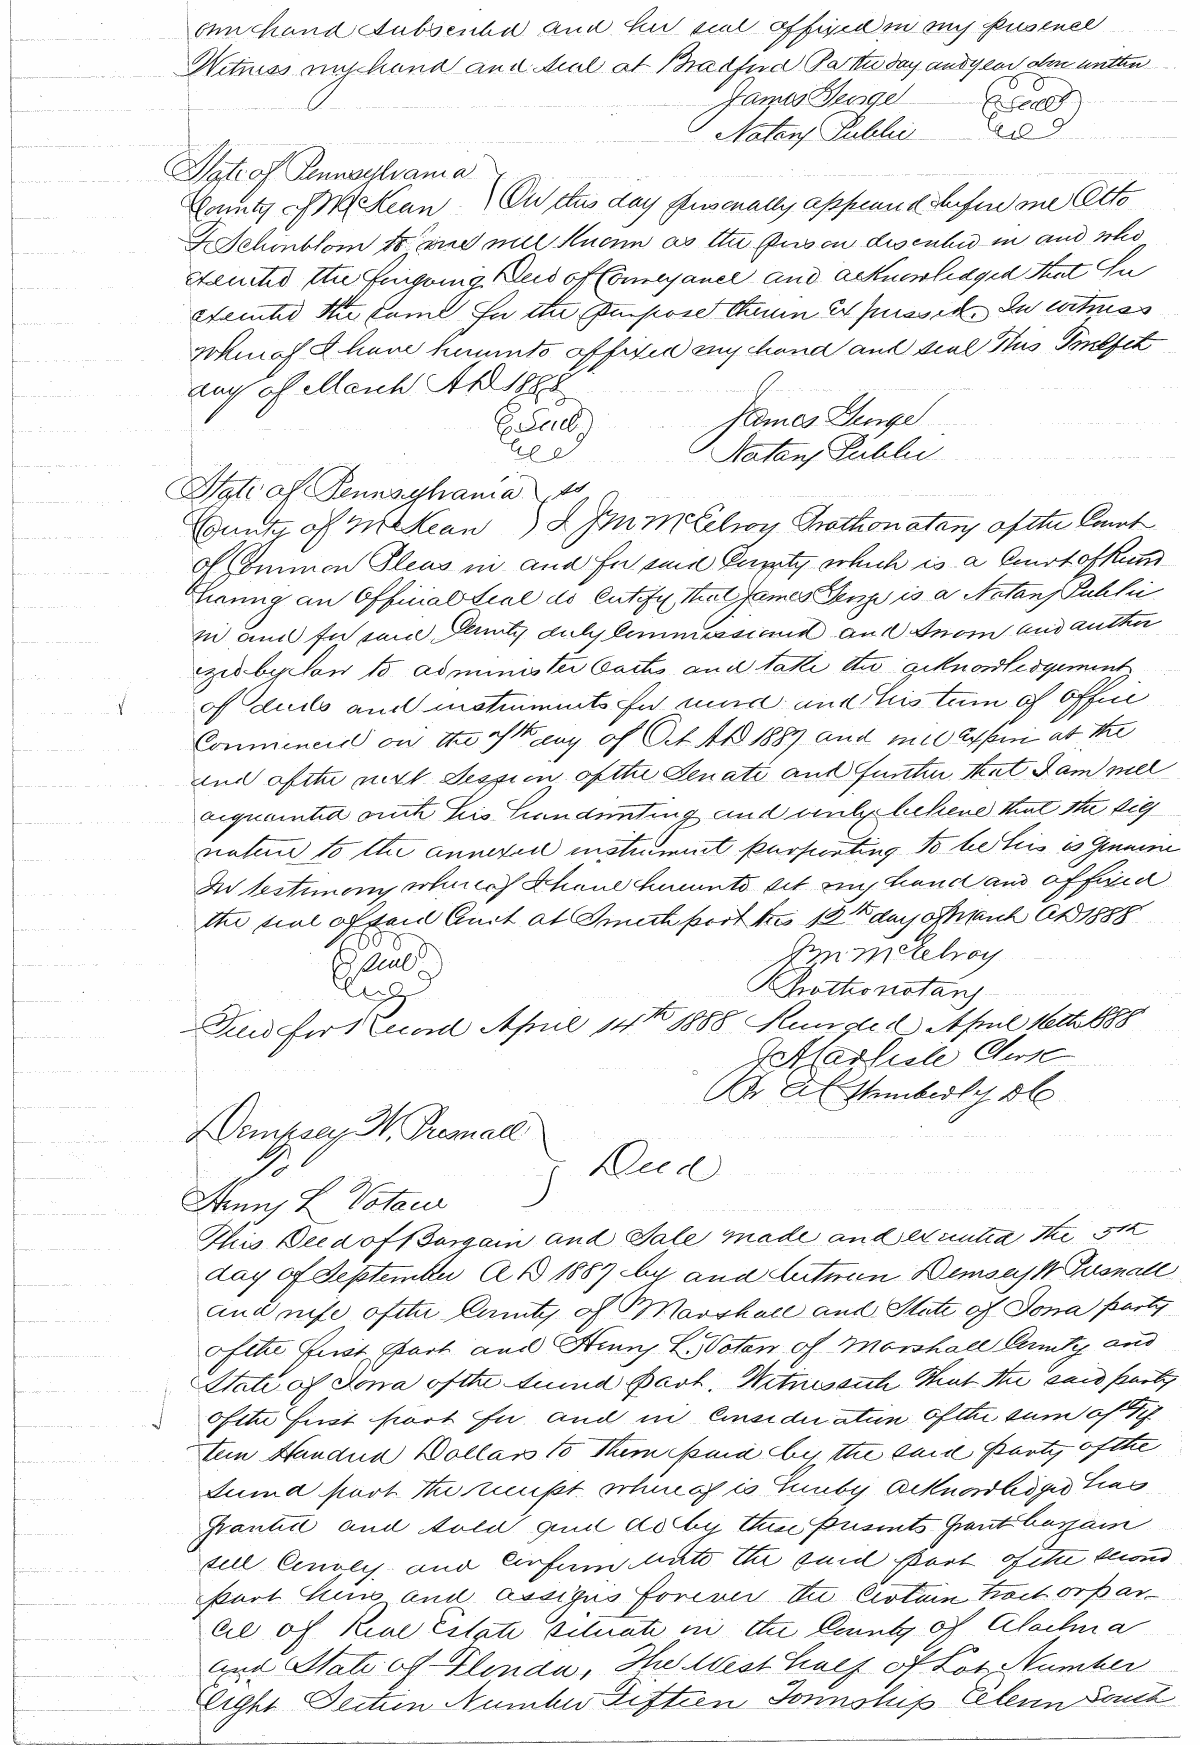 own hand subscribed and her seal affixed in my presence
Witness my hand and seal at Bradford Pa the day and year above written
James George
Seal
Notary Public
State of Pennsylvania
County of McKean } On this day personally appeared before me Otto
F Schonblom to me well known as the person described in and who
executed the foregoing Deed of Conveyance and acknowledged that he
executed the same for the purpose therein expressed. In witness
whereof I have hereunto affixed my hand and seal This Twelfth
day of March AD 1888
Seal
James George
Notary Public
State of Pennsylvania } ss
County of McKean } I JM McElroy Prothonotary of the Court
of Common Pleas in and for said County which is a Court of Record
having an Official Seal do certify that James George is a Notary Public
in and for said County duly Commissioned and sworn and author
ized by law to administer Oaths and take the acknowledgement
of deeds and instruments for record and his term of office
Commenced on the 7th day of Oct AD 1887 and will expire at the
end of the next Session of the Senate and further that I am well
acquainted with his handwriting and verily believe that the sig
nature to the annexed instrument purporting to be his is genuine
In testimony whereof I have hereunto set my hand and affixed
the seal of said Court at Smethport this 12th day of March AD 1888
Seal
JM McElroy
Prothonotary
Filed for Record April 14th 1888 Recorded April 16th 1888
J A Carlisle Clerk
Pr Wimberly DC
Dempsey W. Presnall
To
} Deed
Henry L Votaw
This Deed of Bargain and Sale made and executed the 5th
day of September AD 1887 by and between Demsey W Presnall
and wife of the County of Marshall and State of Iowa party
of the first part and Henry L. Votaw of Marshall County and
State of Iowa of the second part. Witnesseth That the said party
of the first part for and in consideration of the sum of Fif
teen Hundred Dollars to them paid by the said party of the
second part the receipt whereof is hereby acknowledged has
granted and sold and do by these presents grant bargain
sell Convey and Confirm unto the said part of the second
part heirs and assigns forever the Certain tract or par-
cel of Real Estate situate in the County of Alachua
and State of Florida, The West half of Lot Number
Eight Section Number Fifteen Township Eleven South